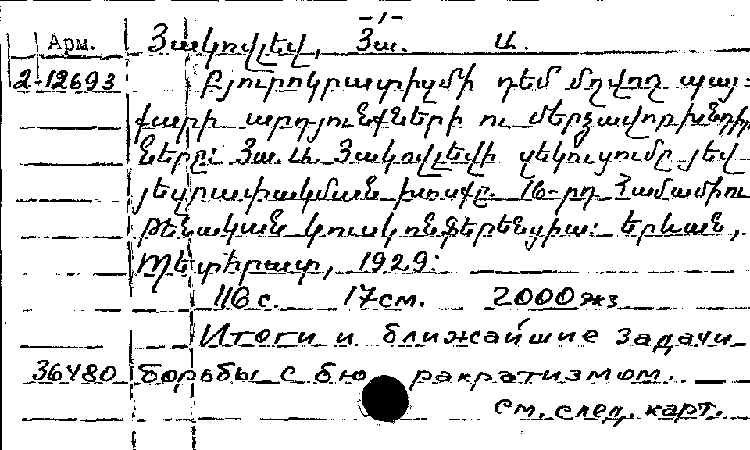 -1-
Арм. Յակովլեվ, Յա. Ա.
2-12693 Բյուրոկրատիզմի դեմ մղվող պայ=
քարի արդյունքների ու մերձավոր խնդիր
ները: Յա. Ա. Յակովլեվի զեկուցումը յեվ
յեզրափակման խոսքը. 16-րդ Համամիու
թենական կուսկոնֆերենցիա: Երևան,
Պետհրատ, 1929:
116 с. 17 см. 2000 экз
Итоги и ближайшие задачи
36480 борьбы с бю ракратизмом.
См. след. карт.